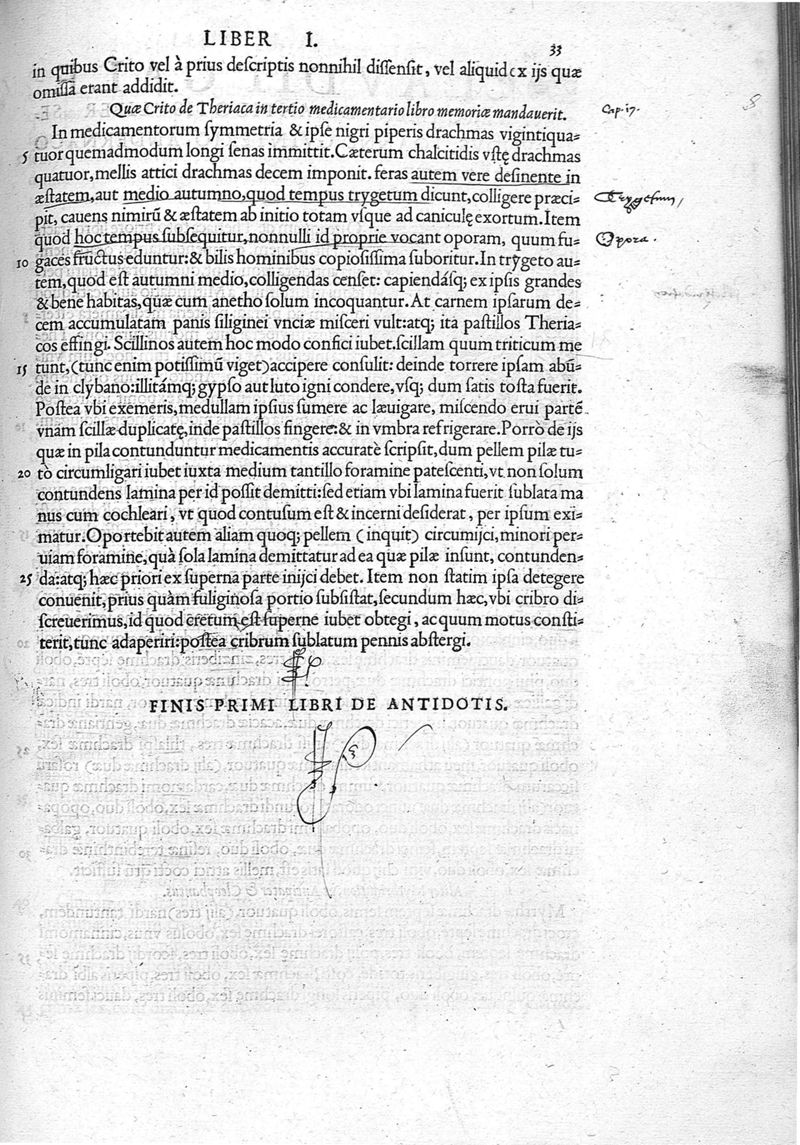 LIBER I. 33
in quibus Crito vel à prius descriptis nonnihil dissensit, vel aliquid ex ijs quæ
omissa erant addidit.
Quæ Crito de Theriaca in tertio medicamentario libro memoriæ mandauerit. Cap. 17.
In medicamentorum symmetria & ipse nigri piperis drachmas vigintiqua=
5 tuor quemadmodum longi senas immittit. Cæterum chalcitidis vstę drachmas
quatuor, mellis attici drachmas decem imponit. feras autem vere desinente in
æstatem, aut medio autumno, quod tempus trygetum dicunt, colligere præci- Trygetum
pit, cauens nimirũ & æstatem ab initio totam vsque ad caniculę exortum. Item
quod hoc tempus subsequitur, nonnulli id proprie vocant oporam, quum fu= Opora.
10 gaces fructus eduntur: & bilis hominibus copiosissima suboritur. In trygeto au=
tem, quod est autumni medio, colligendas censet: capiendásq; ex ipsis grandes
& bene habitas, quæ cum anetho solum incoquantur. At carnem ipsarum de=
cem accumulatam panis siliginei vnciæ misceri vult: atq; ita pastillos Theria=
cos effingi. Scillinos autem hoc modo confici iubet. scillam quum triticum me
15 tunt, (tunc enim potissimũ viget) accipere consulit: deinde torrere ipsam abũ=
de in clybano: illitámq; gypso aut luto igni condere, vsq; dum satis tosta fuerit.
Postea vbi exemeris, medullam ipsius sumere ac læuigare, miscendo erui partẽ
vnam scillæ duplicatę, inde pastillos fingere: & in vmbra refrigerare. Porrò de ijs
quæ in pila contunduntur medicamentis accuratè scripsit, dum pellem pilæ tu=
20 tò circumligari iubet iuxta medium tantillo foramine patescenti, vt non solum
contundens lamina per id possit demitti: sed etiam vbi lamina fuerit sublata ma
nus cum cochleari, vt quod contusum est & incerni desiderat, per ipsum exi=
matur. Oportebit autem aliam quoq; pellem (inquit) circumijci, minori per=
uiam foramine, quà sola lamina demittatur ad ea quæ pilæ insunt, contunden=
25 da: atq; hæc priori ex superna parte inijci debet. Item non statim ipsa detegere
conuenit, prius quàm fuliginosa portio subsistat, secundum hæc, vbi cribro di=
screuerimus, id quod cretum est superne iubet obtegi, ac quum motus consti=
terit, tunc adaperiri: postea cribrum sublatum pennis abstergi.
FINIS PRIMI LIBRI DE ANTIDOTIS.